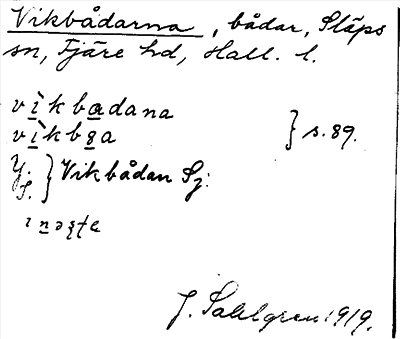 Vikbådarna, bådar, Släps
sn, Fjäre hd, Hall. l.
vìkbadana
vìkb8a } s. 89.
Y. } Vikbådan Sj.
S.
J. Sahlgren 1919.